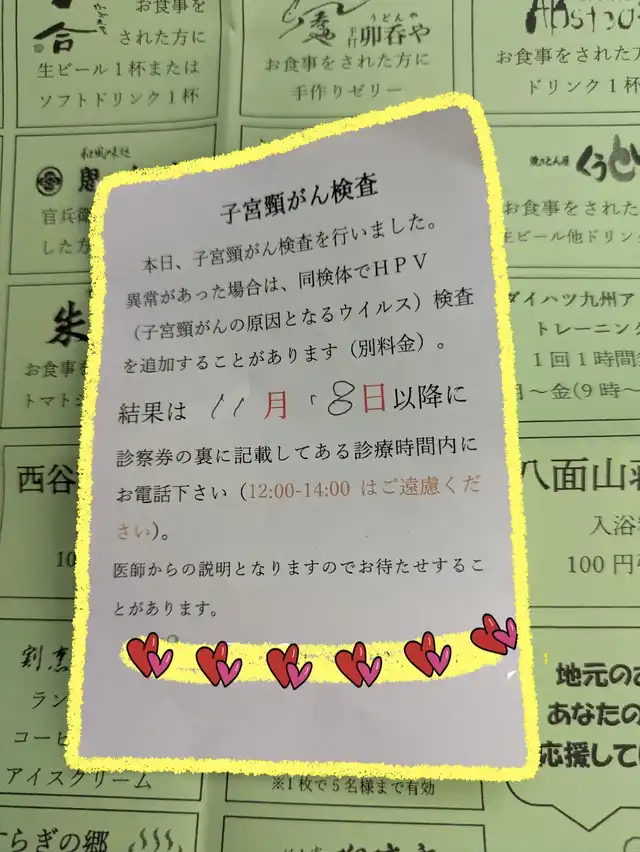 お食事を
された方に
生ビール1杯または
ソフトドリンク1杯
うどんや
卯呑や
お食事をされた方に
手作りゼリー
お食事をされた方に
ドリンク1杯
和風味処
官兵衛
した方
くうとん
お食事をされた
生ビール他ドリン
朱
お食事
トマト
ダイハツ九州ア
トレーニン
1回1時間
月～金(9時～
西谷
10
八面山荘
入浴料
100円
子宮頸がん検査
本日、子宮頸がん検査を行いました。
異常があった場合は、同検体でHPV
(子宮頸がんの原因となるウイルス)検査
を追加することがあります(別料金)。
結果は 11月18日以降に
診察券の裏に記載してある診療時間内に
お電話下さい(12:00-14:00 はご遠慮くだ
さい)。
医師からの説明となりますのでお待たせするこ
とがあります。
割烹
ラン
コーヒ
アイスクリーム
※1枚で5名様まで有効
地元の
あなたの
応援して
すらぎの郷